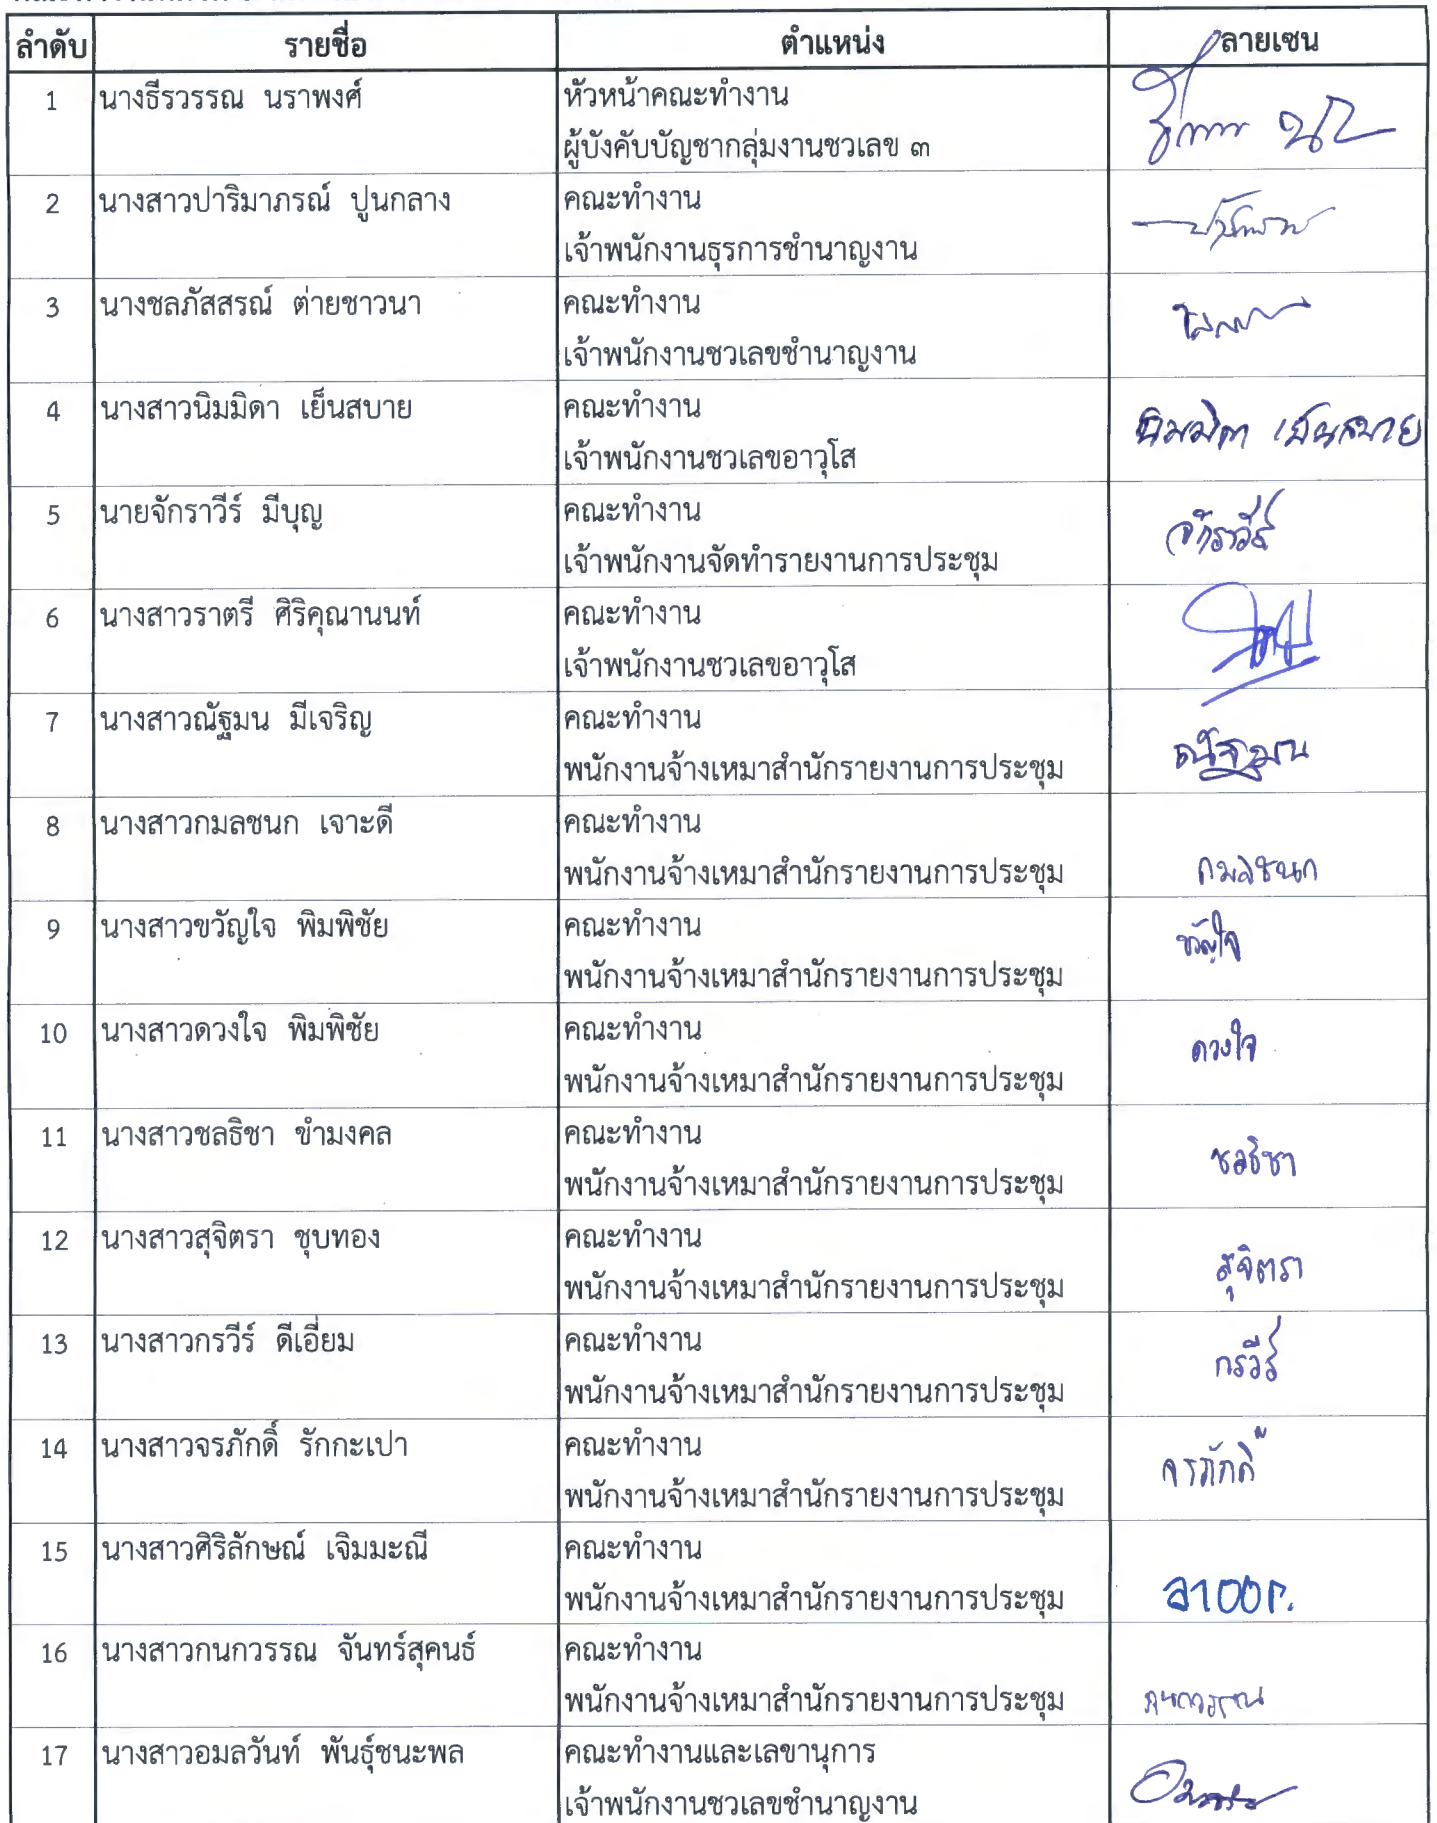 ลำดับ รายชื่อ ตำแหน่ง ลายเซน
1 นางธีรวรรณ นราพงศ์ หัวหน้าคณะทำงาน
ผู้บังคับบัญชากลุ่มงานชวเลข ๓
2 นางสาวปาริมาภรณ์ ปูนกลาง คณะทำงาน
เจ้าพนักงานธุรการชำนาญงาน
3 นางชลภัสสรณ์ ต่ายชาวนา คณะทำงาน
เจ้าพนักงานชวเลขชำนาญงาน
4 นางสาวนิมมิดา เย็นสบาย คณะทำงาน นิมมิดา เย็นสบาย
เจ้าพนักงานชวเลขอาวุโส
5 นายจักราวีร์ มีบุญ คณะทำงาน จักราวีร์
เจ้าพนักงานจัดทำรายงานการประชุม
6 นางสาวราตรี ศิริคุณานนท์ คณะทำงาน
เจ้าพนักงานชวเลขอาวุโส
7 นางสาวณัฐมน มีเจริญ คณะทำงาน ณัฐมน
พนักงานจ้างเหมาสำนักรายงานการประชุม
8 นางสาวกมลชนก เจาะดี คณะทำงาน
พนักงานจ้างเหมาสำนักรายงานการประชุม กมลชนก
9 นางสาวขวัญใจ พิมพิชัย คณะทำงาน ขวัญใจ
พนักงานจ้างเหมาสำนักรายงานการประชุม
10 นางสาวดวงใจ พิมพิชัย คณะทำงาน ดวงใจ
พนักงานจ้างเหมาสำนักรายงานการประชุม
11 นางสาวชลธิชา ขำมงคล คณะทำงาน ชลธิชา
พนักงานจ้างเหมาสำนักรายงานการประชุม
12 นางสาวสุจิตรา ชุบทอง คณะทำงาน สุจิตรา
พนักงานจ้างเหมาสำนักรายงานการประชุม
13 นางสาวกรวีร์ ดีเอี่ยม คณะทำงาน กรวีร์
พนักงานจ้างเหมาสำนักรายงานการประชุม
14 นางสาวจรภักดิ์ รักกะเปา คณะทำงาน จรภักดิ์
พนักงานจ้างเหมาสำนักรายงานการประชุม
15 นางสาวศิริลักษณ์ เจิมมะณี คณะทำงาน
พนักงานจ้างเหมาสำนักรายงานการประชุม
16 นางสาวกนกวรรณ จันทร์สุคนธ์ คณะทำงาน
พนักงานจ้างเหมาสำนักรายงานการประชุม กนกวรรณ
17 นางสาวอมลวันท์ พันธุ์ชนะพล คณะทำงานและเลขานุการ
เจ้าพนักงานชวเลขชำนาญงาน